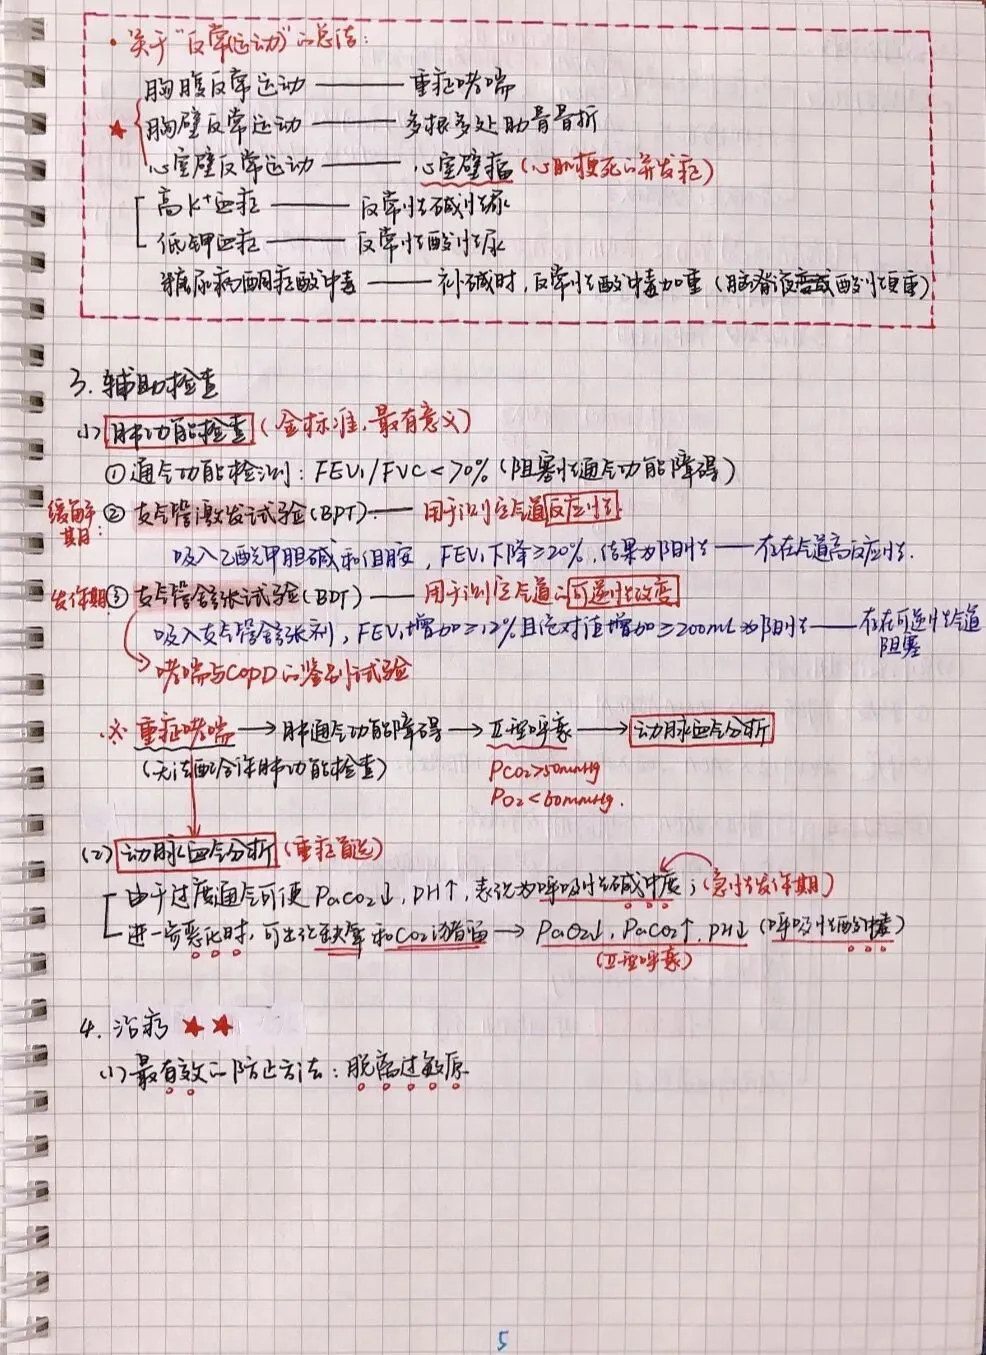 · 关于“反常运动”的总结:
胸腹反常运动 —— 重症哮喘
★ 胸壁反常运动 —— 多根多处肋骨骨折
心室壁反常运动 —— 心室壁瘤(心肌梗死的并发症)
高K⁺血症 —— 反常性碱性尿
低钾血症 —— 反常性酸性尿
糖尿病酮症酸中毒 —— 补碱时,反常性酸中毒加重(脑脊液变成酸性更重)
3. 辅助检查
(1) 肺功能检查(金标准,最有意义)
① 通气功能检测: FEV₁/FVC<70%(阻塞性通气功能障碍)
缓解期: ② 支气管激发试验(BPT) —— 用于测定气道反应性
吸入乙酰甲胆碱和组胺, FEV₁下降≥20%,结果为阳性 —— 存在气道高反应性.
发作期: ③ 支气管舒张试验(BDT) —— 用于测定气道的可逆性改变
吸入支气管舒张剂, FEV₁增加≥12%且绝对值增加≥200mL为阳性 —— 存在可逆性气道阻塞
哮喘与COPD的鉴别试验
※ 重症哮喘 → 肺通气功能障碍 → Ⅱ型呼衰 → 动脉血气分析
(无法配合作肺功能检查) PCO₂>50mmHg
PO₂<60mmHg.
(2) 动脉血气分析(重症首选)
由于过度通气可使PaCO₂↓, PH↑, 表现为呼吸性碱中毒;(急性发作期)
进一步恶化时,可出现缺氧和CO₂潴留 → PaO₂↓, PaCO₂↑, PH↓ (呼吸性酸中毒)
(Ⅱ型呼衰)
4. 治疗 ★★
(1) 最有效的防止方法: 脱离过敏原
5